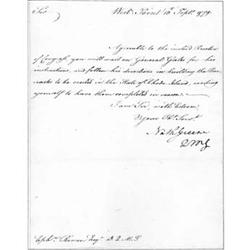 Sir West Point 10th Sept. 1779
Agreeable to the inclosed Resolve
of Congress you will wait on General Gates for his
instructions, and follow his directions in building the Bar-
racks to be erected in the State of Rhode Island,
yourself to have them completed in season.
I am Sir, with Esteem
Your Obt. Servt.
Nath Greene
QMG
Esqr D Q M G